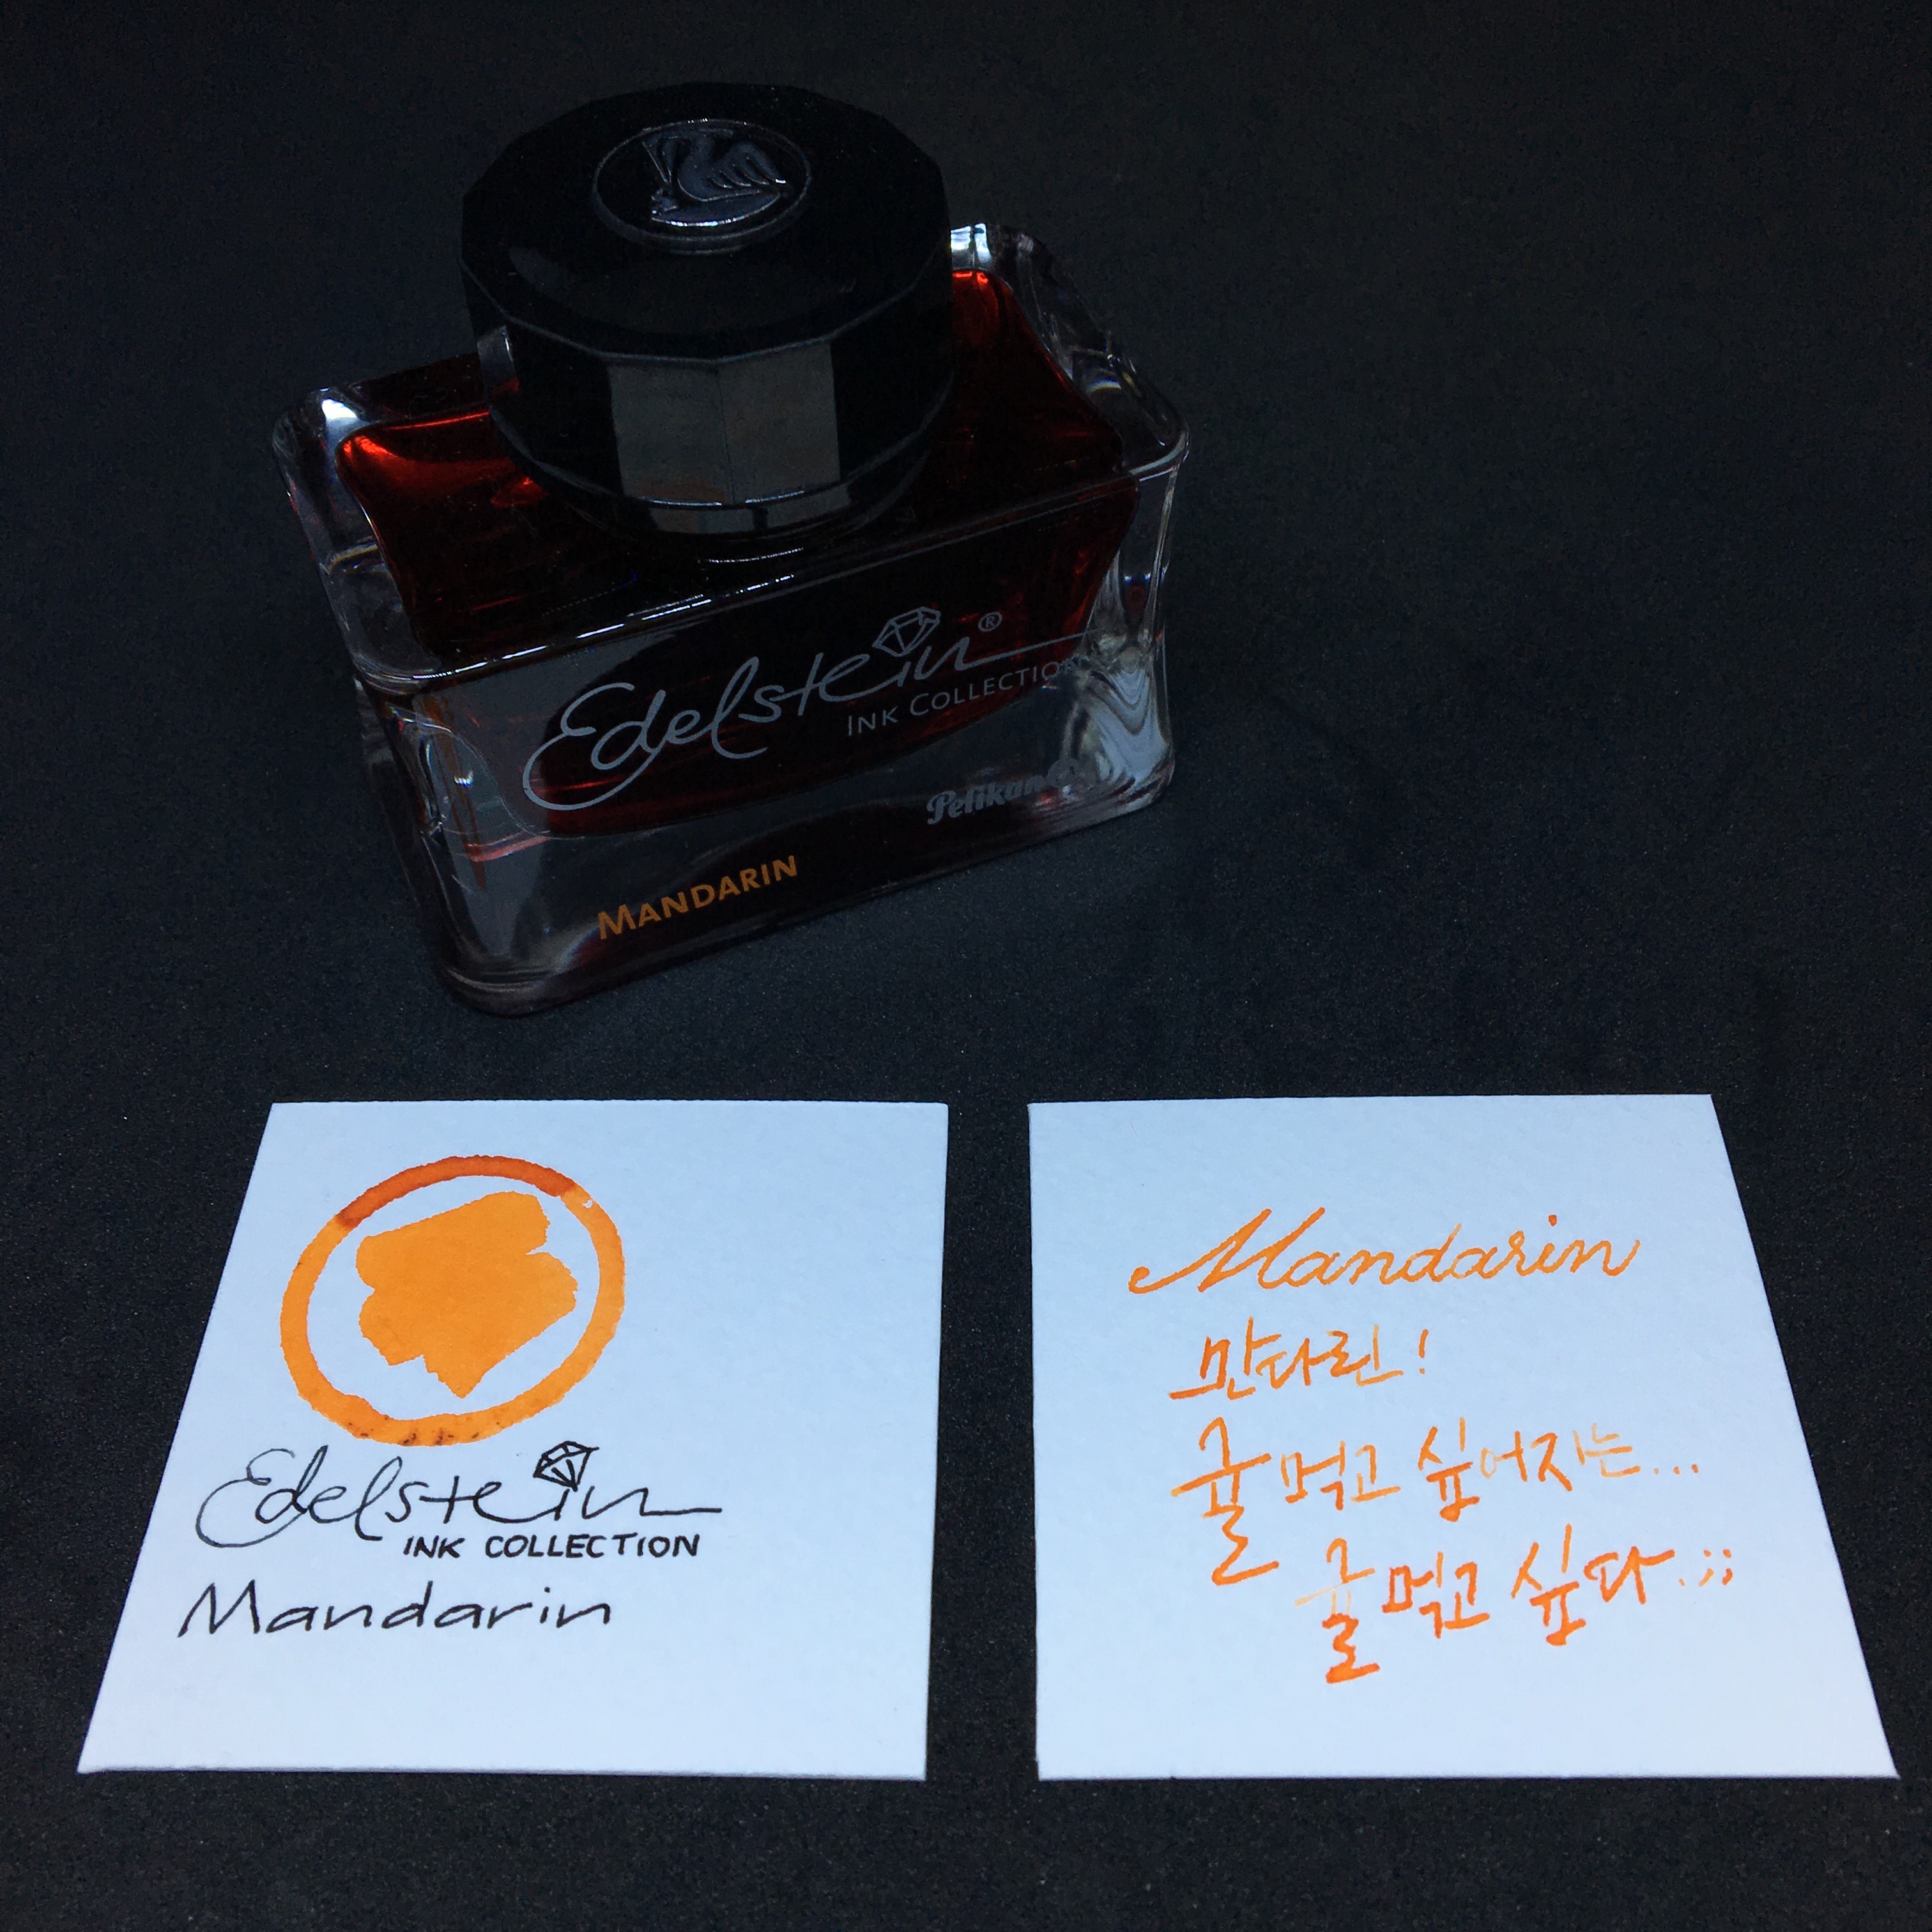 Edelstein®
INK COLLECTION
Pelikan
MANDARIN
Edelstein
INK COLLECTION
Mandarin
Mandarin
만다린!
귤 먹고 싶어지는...
귤 먹고 싶다.;;